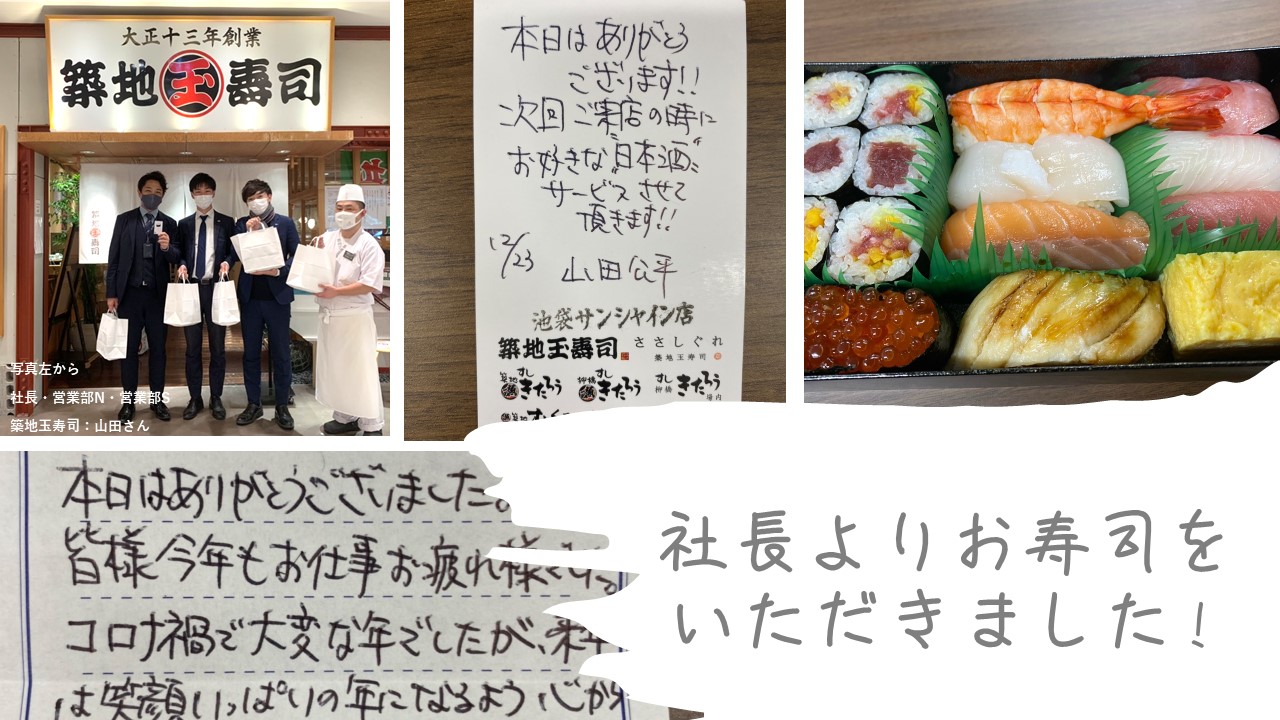 大正十三年創業
築地玉壽司
築地玉壽司
写真左から
社長・営業部N・営業部S
築地玉寿司：山田さん
本日はありがとう
ございます!!
次回ご来店の時に
お好きな日本酒
サービスさせて
頂きます!!
12/23
山田公平
池袋サンシャイン店
築地玉壽司 ささしぐれ
築地玉寿司
すし きたろう
柳橋 すし きたろう
すし 柳橋 きたろう 場内
本日はありがとうございました。
皆様今年もお仕事お疲れ様でした。
コロナ禍で大変な年でしたが、来年
は笑顔いっぱいの年になるよう心から
社長よりお寿司を
いただきました!